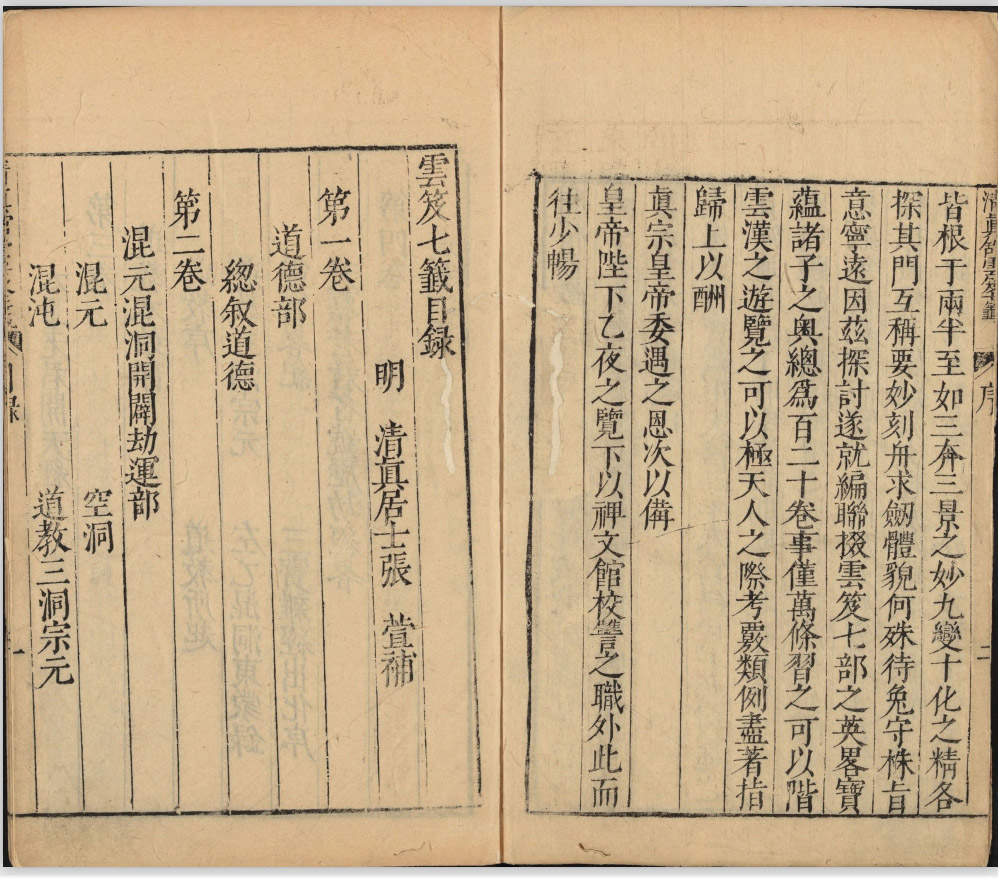 皆根于兩半至如三奔三景之妙九變十化之精各
探其門互稱要妙刻舟求劒體貌何殊待兔守株旨
意寧遠因茲探討遂就編聯掇雲笈七部之英畧寶
蘊諸子之奧總爲百二十卷事僅萬條習之可以階
雲漢之遊覽之可以極天人之際考覈類例盡著指
歸上以酬
眞宗皇帝委遇之恩次以備
皇帝陛下乙夜之覽下以裨文館校讐之職外此而
往少暢
序
二
雲笈七籤目録
明 清眞居士張 萱補
第一卷
道德部
總叙道德
第二卷
混元混洞開闢劫運部
混元 空洞
混沌 道教三洞宗元
目録
一